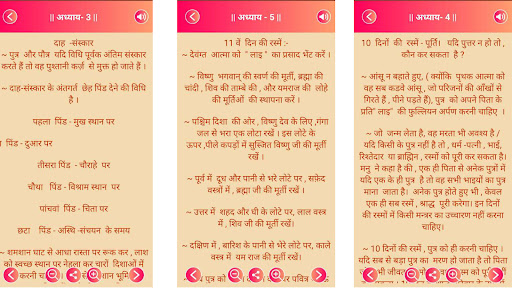 || अध्याय - 3 ||
दाह -संस्कार
~ पुत्र और पौत्र यदि विधि पूर्वक अंतिम संस्कार
करते हैं तो वह पुश्तानी कर्ज़ से मुक्त हो जाते हैं ।
~ दाह-संस्कार के अंतगर्त छेह पिंड देने की विधि
है ।
पहला पिंड - मुख स्थान पर
पिंड - दुआर पर
तीसरा पिंड - चौराहे पर
चौथा पिंड - विश्राम स्थान पर
पांचवां पिंड - चिता पर
छटा पिंड - अस्थि -संचयन के समय
~ शमशान घाट से आधा रास्ता पर रूक कर , लाश
को स्वच्छ स्थान पर नेहला कर चारों दिशाओं में
|| अध्याय - 5 ||
11 वें दिन की रस्में :-
~ देवंगत आत्मा को " लाडू " का प्रसाद भेंट करें ।
~ विष्णु भगवान् की स्वर्ण की मूर्ती, ब्रह्मा की
चांदी , शिव की ताम्बे की , और यमराज की लोहे
की मूर्तिओं की स्थापना करें ।
~ पश्चिम दिशा की ओर , विष्णु देव के लिए ,गंगा
जल से भरा एक लोटा रखें । इस लोटे के
ऊपर ,पीले कपड़ों में सुस्जित विष्णु जी की मूर्ती
रखें ।
~ पूर्व में दूध और पानी से भरे लोटे पर , सफ़ेद
वस्त्रों में , ब्रह्मा जी की मूर्ती रखें ।
~ उत्तर में शहद और घी के लोटे पर, लाल वस्त्र
में , शिव जी की मूर्ती रखें ।
~ दक्षिण में , बारिश के पानी से भरे लोटे पर, काले
वस्त्रों में यम राज की मूर्ती रखें ।
|| अध्याय - 4 ||
10 दिनों की रस्में - पूर्ति। यदि पुत्तर न हो तो ,
कौन कर सकता है ?
~ आंसू न बहाते हुए, ( क्योंकि पृथक आत्मा को
वह सब कडवे आंसू , जो परिजनों की आँखों से
गिरते हैं , पीने पड़ते हैं), पुत्र को अपने पिता के
प्रति" लाडू" की फुल्लियन अर्पण करनी चाहिए ।
~ जो जन्म लेता है, वह मरता भी अवश्य है /
यदि किसी के पुत्र नहीं है तो , धर्म -पत्नी , भाई,
रिश्तेदार या ब्राह्मिन , रस्मों को पूरी कर सकता है।
मनु ने कहा है की , एक ही पिता से अनेक पुत्रों में
यदि एक के ही पुत्र है तो वह सभी भाइयों का पुत्र
माना जाता है। अनेक पुत्र होते हुए भी , केवल
एक ही सब रस्में , श्राद्ध पूरी करेगा। इन दिनों
की रस्मों में किसी मन्त्र का उच्चारण नहीं करना
चाहिए।
~ 10 दिनों की रस्में , पुत्र को ही करनी चाहिए ।
यदि सब से बड़ा पुत्र का मरण हो जाता है तो पिता